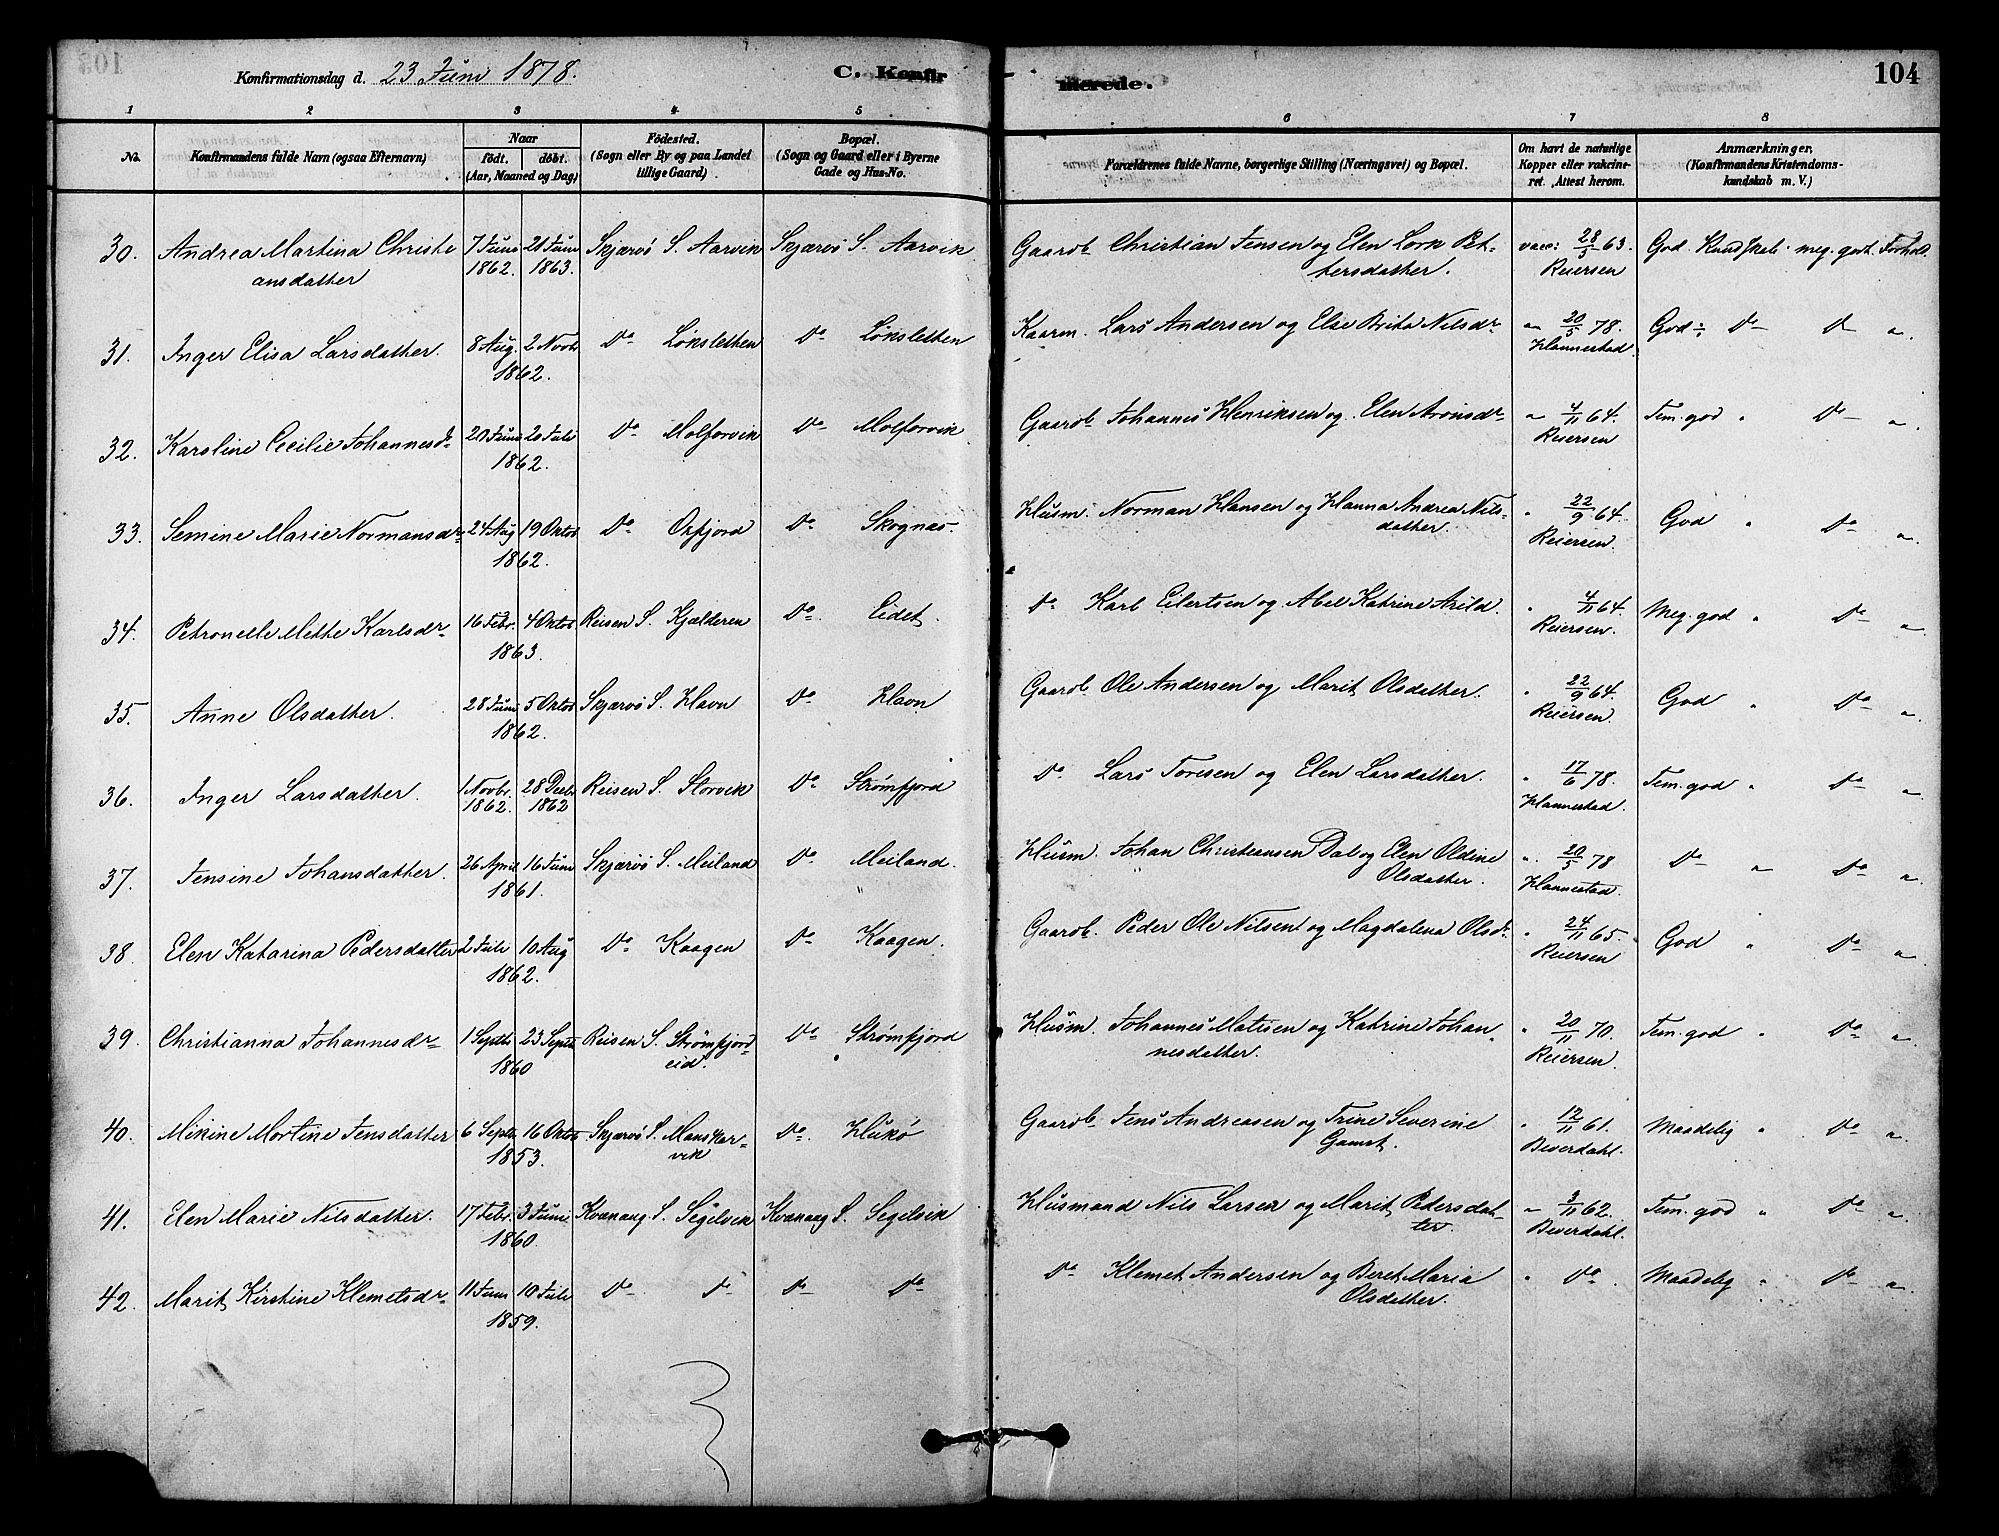 Konfirmationsdag d. 23 Juni 1878.
C. Konfirmerede.
104
1 2 3 4 5 6 7 8
No.
Konfirmandens fulde Navn (ogsaa Efternavn)
Naar
födt. döbt.
(Aar, Maaned og Dag)
Födested.
(Sogn eller By og paa Landet
tillige Gaard)
Bopæl.
(Sogn og Gaard eller i Byerne
Gade og Hus-No.
Forældrenes fulde Navne, borgerlige Stilling (Næringsvei) og Bopæl.
Om havt de naturlige
Kopper eller vakcine-
ret. Attest herom.
Anmærkninger,
(Konfirmandens Kristendoms-
kundskab m. V.)
30. Andrea Martina Christi- 7 Juni 21 Juni Skjærvö S. Aarvik Skjærvö S. Aarvik Gaarb. Christian Jensen og Elen Lork Pet- vacc: 28/5 63. God Kundskab. meg. godt Forhold.
ansdatter 1862. 1863. tersdatter. Reiersen
31. Inger Elisa Larsdatter. 8 Aug. 2 Novbr Do Löksletten Do Löksletten Kaarm. Lars Andersen og Else Brita Nilsdr " 20/5 78. God ÷ Do D "
1862. Hannestad.
32. Karoline Cecilie Johannesdr 20 Juni 20 Juli Do Molforvik Do Molforvik Gaarb. Johannes Henriksen og Elen Aronsdr " 4/11 64. Tem. god " Do "
1862. Reiersen
33. Semine Marie Normansdr 24 Aug 19 Oktob Do Oxfjord Do Skognæs. Husm. Norman Hansen og Hanna Andrea Nils- " 22/9 64. God " Do "
1862. datter. Reiersen.
34. Petronelle Mette Karlsdr 16 Febr. 4 Oktob Reisen S. Kjelderen Do Eidet. Do Karl Eilertsen og Abel Katrine Arild. " 4/11 64. Meg. god " Do "
1863. Reiersen.
35. Anne Olsdatter. 28 Juni 5 Oktob Skjærvö S. Havn Do Havn Gaarb. Ole Andersen og Marit Olsdatter. " 22/9 64. God " Do "
1862. Reiersen.
36. Inger Larsdatter. 1 Novbr. 28 Decbr Reisen S. Storvik Do Strömfjord Do Lars Toresen og Elen Larsdatter. " 17/6 78. Tem. god " Do "
1862. 1862 Hannestad.
37. Jensine Johansdatter. 26 April 16 Juni Skjærvö S. Meiland Do Meiland. Husm. Johan Christiansen Dal og Elen Oldine " 20/5 78 Do " Do "
1861. Olsdatter. Hannestad.
38. Elen Katarina Pedersdatter 2 Juli 10 Aug Do Kaagen Do Kaagen. Gaarb. Peder Ole Nilsen og Magdalena Olsdr " 24/11 65. God " Do "
1862. Reiersen
39. Christianna Johannesdr 1 Septbr 23 Septbr Reisen S. Strömfjord- Do Strömfjord Husm. Johannes Matisen og Katrine Johan- " 20/11 70. Tem. god " Do "
1860 eid. nesdatter. Reiersen.
40. Mikine Mortine Jensdatter 6 Septbr. 16 Oktob Skjærvö S. Manskar- Do. Hukö Gaarb. Jens Andreasen og Trine Severine " 12/11 61. Maadelig " Do "
1853. vik Gamst. Beverdahl.
41. Elen Marie Nilsdatter. 17 Febr. 3 Juni Kvænang S. Segelvik Kvænang S. Segelvik Husmand Nils Larsen og Marit Pedersdat- " 3/11 62. Tem. god " Do "
1860. ter. Beverdahl.
42. Marit Kirstine Klemetsdr 11 Juni 10 Juli Do Do Do Do Do Klemet Andersen og Beret Maria " Do. Maadelig " Do "
1859. Olsdatter.